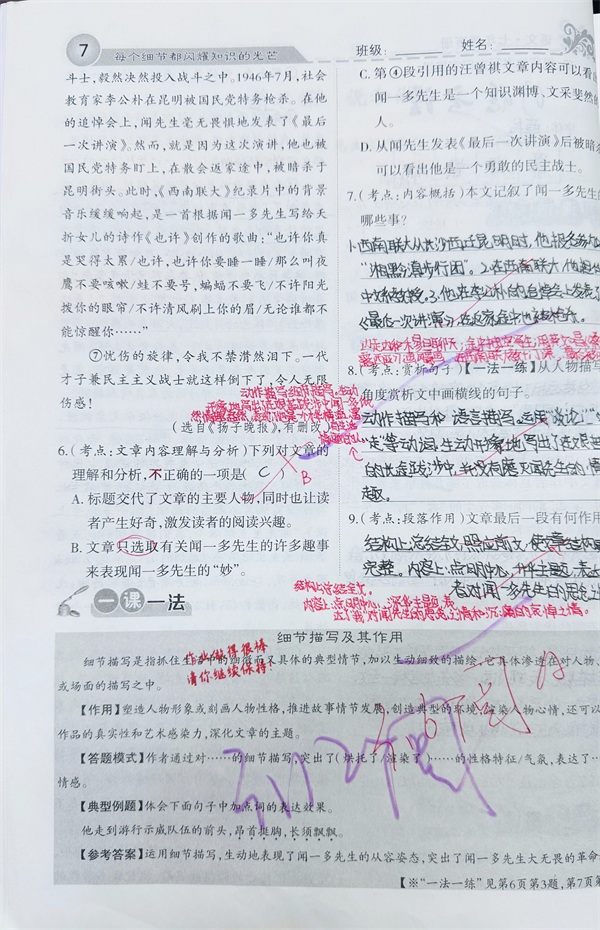 7
每个细节都闪耀知识的光芒
班级：
姓名：
斗士，毅然决然投入战斗之中。1946年7月，社会
教育家李公朴在昆明被国民党特务枪杀。在他
的追悼会上，闻先生毫无畏惧地发表了《最后
一次讲演》。然而，就是因为这次演讲，他也被
国民党特务盯上，在散会返家途中，被暗杀于
昆明街头。此时，《西南联大》纪录片中的背景
音乐缓缓响起，是一首根据闻一多先生写给夭
折女儿的诗作《也许》创作的歌曲：“也许你真
是哭得太累/也许，也许你要睡一睡/那么叫夜
鹰不要咳嗽/蛙不要号，蝙蝠不要飞/不许阳光
拨你的眼帘/不许清风刷上你的眉/无论谁都不
能惊醒你……”
⑦忧伤的旋律，令我不禁潸然泪下。一代
才子兼民主主义战士就这样倒下了，令人无限
伤感！
（选自《扬子晚报》，有删改）
动作描写细节描写，生动
6.（考点：文章内容理解与分析）下列对文章的
理解和分析，不正确的一项是（ C ）
B
A. 标题交代了文章的主要人物，同时也让读
者产生好奇，激发读者的阅读兴趣。
B. 文章只选取有关闻一多先生的许多趣事
来表现闻一多先生的“妙”。
C. 第④段引用的汪曾祺文章内容可以看
闻一多先生是一个知识渊博、文采斐然的
人。
D. 从闻先生发表《最后一次讲演》后被暗
可以看出他是一个勇敢的民主战士。
7.（考点：内容概括）本文记叙了闻一多先生的
哪些事？
1.西南联大从长沙西迁昆明时，他报名参加
“湘黔滇步行团”。2.在西南联大，他
中文系教授。3.他在李公朴的追悼会上发表了
《最后一次讲演》
8.（考点：赏析句子）【一法一练】从人物描写
角度赏析文中画横线的句子。
动作描写和语言描写。运用“谈论”“
走”等动词，生动形象地写出了在艰
的长途跋涉中，并没有磨灭闻先生的情
趣。
9.（考点：段落作用）文章最后一段有何作用
结构上：总结全文，照应前文，使文章结构
完整。内容上：点明中心，升华主题，表
者对闻一多先生的思念之
结构上：总结全文。
内容上：点明中心，深华主题，表
达了“我”对闻先生的思念之情和沉痛的哀悼之情。
一课一法
细节描写及其作用
作业做得很棒
请你继续保持！
细节描写是指抓住生活中的细微而又具体的典型情节，加以生动细致的描绘，它具体渗透在对人物、
或场面的描写之中。
【作用】塑造人物形象或刻画人物性格，推动故事情节发展，创造典型的环境，渲染人物心情，还可以
作品的真实性和艺术感染力，深化文章的主题。
【答题模式】作者通过对……的细节描写，突出了（烘托了/渲染了）……的性格特征/气氛，表达了…
情感。
【典型例题】体会下面句子中加点词的表达效果。
他走到游行示威队伍的前头，昂首挺胸，长须飘飘。
【参考答案】运用细节描写，生动地表现了闻一多先生的从容姿态，突出了闻一多先生大无畏的革命
【※“一法一练”见第6页第3题，第7页第